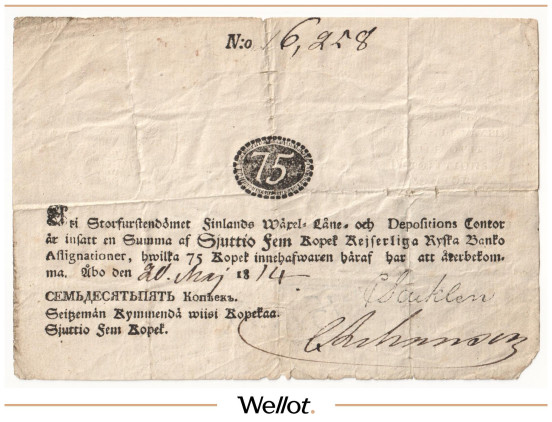 N:o 16,258
75
Uti Storfurstendömet Finlands Wäxel- Låne- och Depositions Contor
är insatt en Summa af Sjuttio Fem Kopek Kejserliga Ryska Banko
Assignationer, hwilka 75 Kopek innehafwaren häraf har att återbekom-
ma. Åbo den 20. Maj 1814
СЕМЬДЕСЯТЬПЯТЬ Копѣекъ.
Seitzemän Kymmendä wiisi Kopekaa.
Sjuttio Fem Kopek.
Wellot.